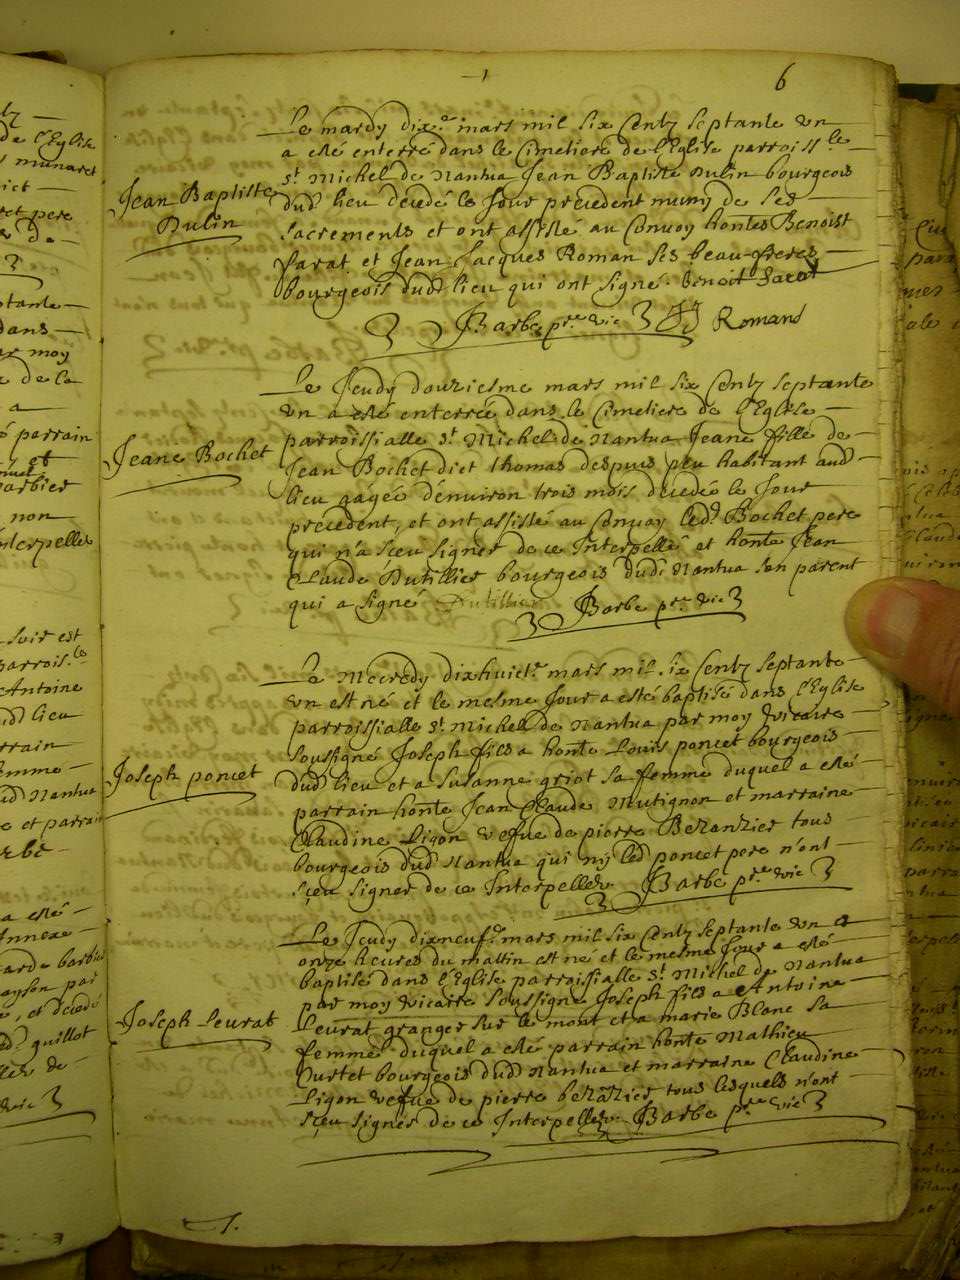 6
Le mardy dix.e mars mil six Centz septante un
a esté enterré dans le Cimetiere de l'Eglise parroiss.le
Jean Baptiste
Dulin
st Michel de Nantua Jean Baptiste Dulin bourgeois
dud lieu decedé le Jour precedent muny de ses
sacrements et ont assisté au Convoy hontes Benoist
Sarat et Jean Jacques Roman ses beau-freres
bourgeois dud lieu qui ont signé. benoit Sarat
Barbe p.re vic JJ Romans
Le Jeudy douziesme mars mil six Centz septante
un a esté enterrée dans le Cimetiere de l'Eglise
Jeane Bochet
parroissialle st Michel de Nantua Jeane fille de
Jean Bochet dict thomas despuis peu habitant aud
lieu gágée d'environ trois mois decedée le Jour
precedent, et ont assisté au Convoy led Bochet pere
qui n'a sceu signer de ce Interpellé et honte Jean
Claude Dutillier bourgeois dud Nantua son parent
qui a signé Dutillier Barbe p.re vic
Le Mecredy dixhuict.e mars mil six Centz septante
un est né et le mesme Jour a esté baptisé dans l'Eglise
parroissialle st Michel de Nantua par moy vicaire
Joseph poncet
soussigné Joseph fils a honte Louis poncet bourgeois
dud lieu et a Susanne griot sa femme duquel a esté
parrain honte Jean Claude Mutignon et marraine
Claudine Ligon vefue de pierre Bezanzier tous
bourgeois dud Nantua qui ny led poncet pere n'ont
sçeu signer de ce Interpellez Barbe p.re vic
Le Jeudy dixneuf.e mars mil six Centz septante un a
onze heures du mattin est né et le mesme Jour a esté
baptisé dans l'Eglise parroissialle st Michel de Nantua
par moy vicaire soussigné Joseph fils a Antoine
Joseph Leurat
Leurat granger sur le mont et a marie Blanc sa
femme duquel a esté parrain honte Mathieu
Curtet bourgeois dud Nantua et marraine Claudine
Ligon vefue de pierre bezazier, tous lesquels n'ont
sçeu signer de ce Interpellez Barbe p.re vic